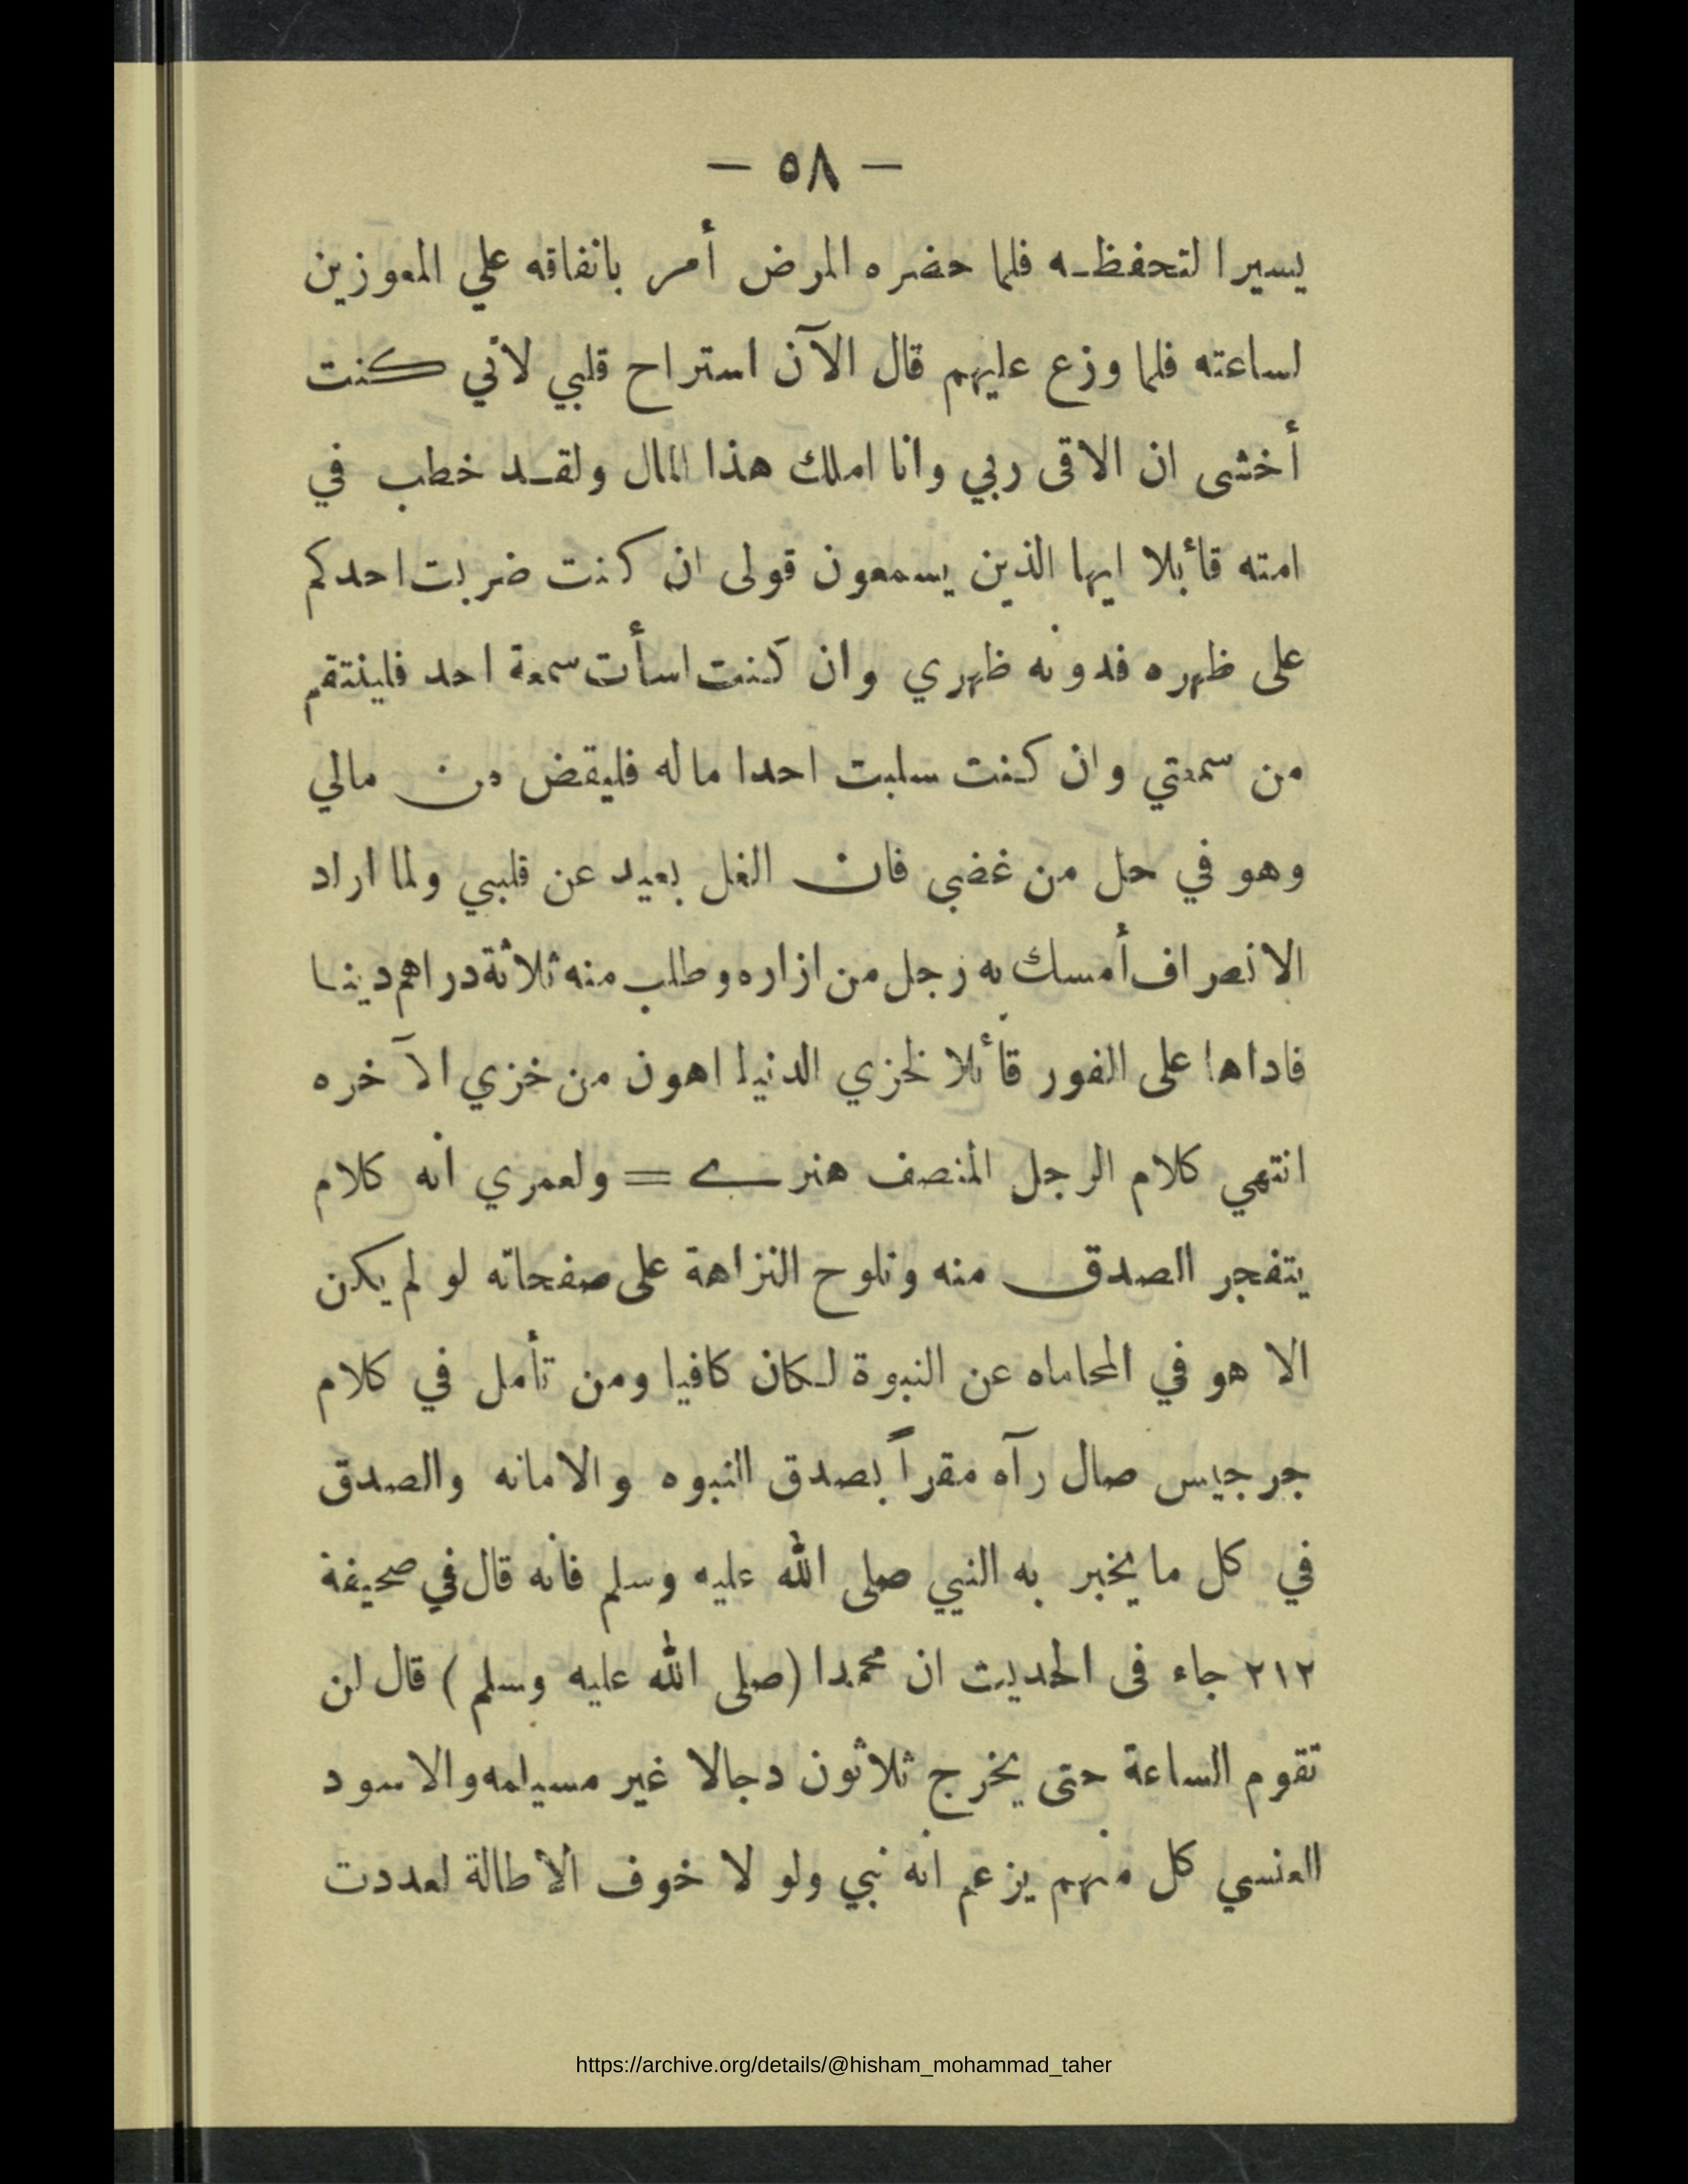 — ٥٨ —
يسيرا لتحفظـه فلما حضره المرض أمر بانفاقه علي المعوزين
لساعته فلما وزع عليهم قال الآن استراح قلبي لاني كنت
أخشى ان الاقى ربي وانا املك هذا المال ولقـد خطب في
امته قائبلا ايها الذين يسمعون قولى ان كنت ضربت احدكم
على ظهره فدونه ظهري وان كنت اسأت سمعة احد فلينتقم
من سمعتي وان كنت سلبت احدا ماله فليقض من مالي
وهو في حل من غضبي فان الغل بعيد عن قلببي ولما اراد
الانصراف أمسك به رجل من ازاره وطلب منه ثلاثة دراهم دينا
فاداها على الفور قائلا لخزي الدنيا اهون من خزي الآخره
انتهي كلام الرجل المنصف هنري = ولعمري انه كلام
يتفجر الصدق منه وتلوح النزاهة على صفحاته لو لم يكن
الا هو في المحاماه عن النبوة لـكان كافيا ومن تأمل في كلام
جرجيس صال رآه مقراً بصدق النبوه والامانه والصدق
في كل ما يخبر به النبي صلى الله عليه وسلم فانه قال في صحيفة
٢١٢ جاء فى الحديث ان محمدا (صلى الله عليه وسلم) قال لن
تقوم الساعة حتى يخرج ثلاثون دجالا غير مسيلمه والاسود
العنسي كل منهم يزعم انه نبي ولو لا خوف الاطالة لعددت
https://archive.org/details/@hisham_mohammad_taher